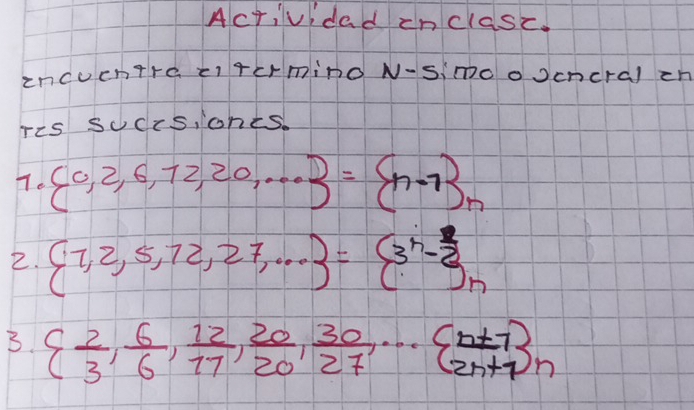 Actividad en clase.
encuentra el termino N-simo o general en
res sucesiones.
1. {0, 2, 6, 12, 20, ....} = {n-1}n
2. {1, 2, 5, 12, 27, ...} = {3^n - 2}n
3. {2/3, 6/6, 12/11, 20/20, 30/27, ... {n+1/2n+1}n